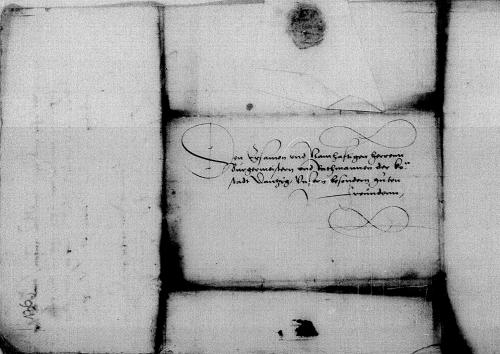 Den Ersamen vnd Namhafftigen herrenn
Burgermeistern vnd Rathmannen der
stadt Dantzig, Vnsern besondern guten
freundenn